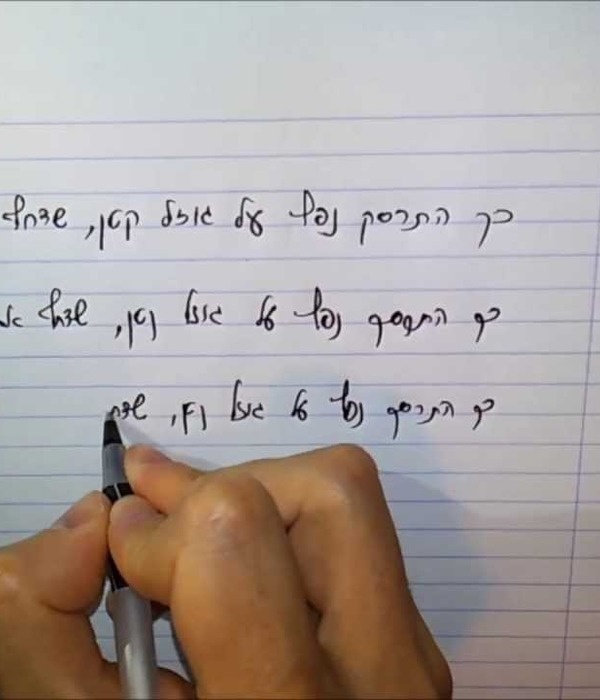 כך התרסק נפץ על גוזל קטן, שדחף
כך התרסק נפץ על גוזל קטן, שדחף
כך התרסק נפץ על גוזל קטן, שדח